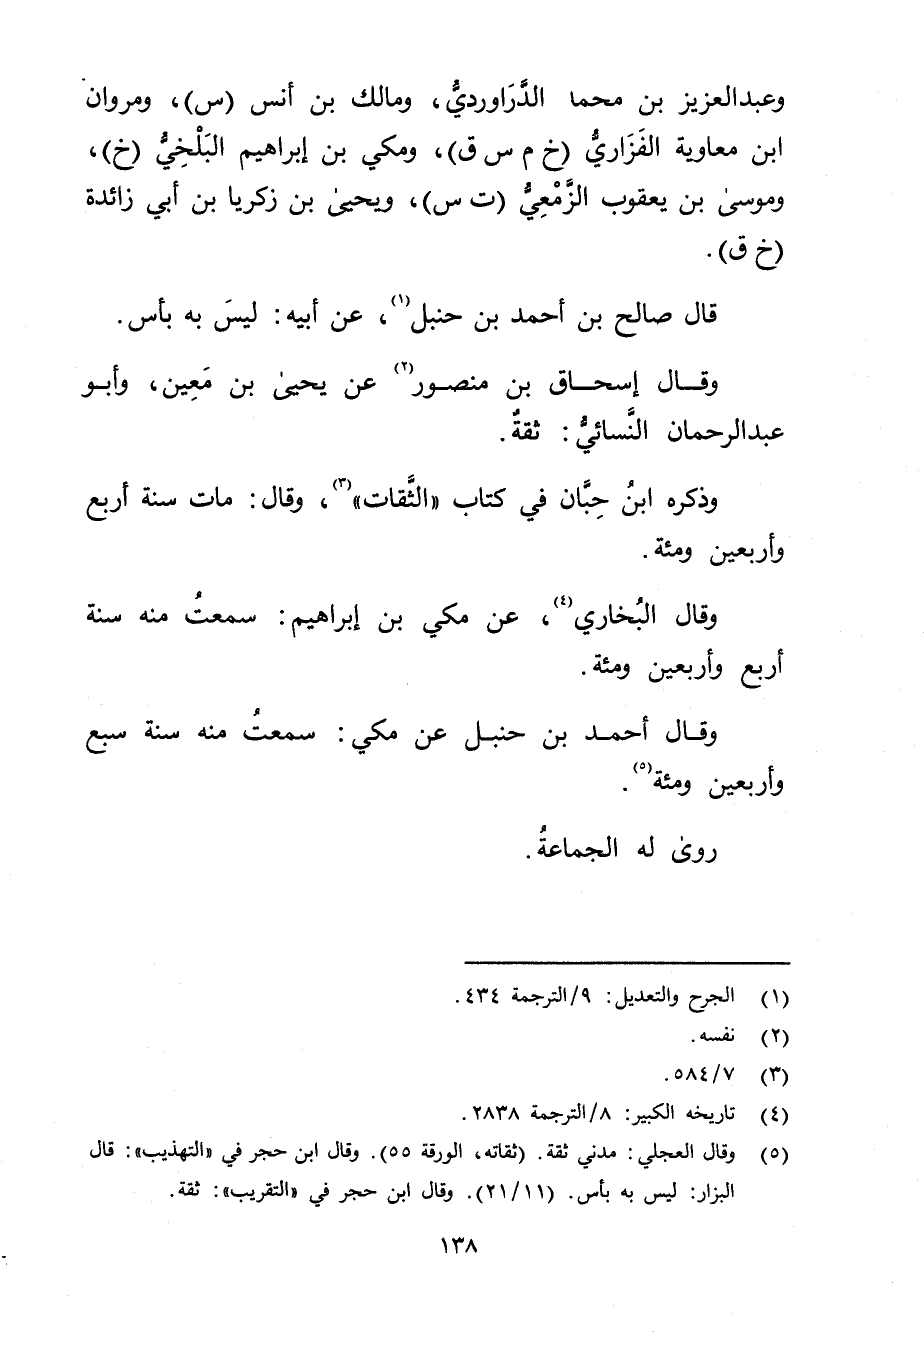 وعبدالعزيز بن محمد الدَّرَاورديُّ، ومالك بن أنس (س)، ومروان
ابن معاوية الفَزَاريُّ (خ م س ق)، ومكي بن إبراهيم البَلْخِيُّ (خ)،
وموسىٰ بن يعقوب الزَّمْعِيُّ (ت س)، ويحيىٰ بن زكريا بن أبي زائدة
(خ ق).
قال صالح بن أحمد بن حنبل(١)، عن أبيه: ليسَ به بأس.
وقال إسحاق بن منصور(٢) عن يحيىٰ بن مَعِين، وأبو
عبدالرحمان النَّسائيُّ: ثقةٌ.
وذكره ابنُ حِبَّان في كتاب «الثَّقات»(٣)، وقال: مات سنة أربع
وأربعين ومئة.
وقال البُخاري(٤)، عن مكي بن إبراهيم: سمعتُ منه سنة
أربع وأربعين ومئة.
وقال أحمد بن حنبل عن مكي: سمعتُ منه سنة سبع
وأربعين ومئة(٥).
روىٰ له الجماعةُ.
(١) الجرح والتعديل: ٩/الترجمة ٤٣٤.
(٢) نفسه.
(٣) ٥٨٤/٧.
(٤) تاريخه الكبير: ٨/الترجمة ٢٨٣٨.
(٥) وقال العجلي: مدني ثقة. (ثقاته، الورقة ٥٥). وقال ابن حجر في «التهذيب»: قال
البزار: ليس به بأس. (٢١/١١). وقال ابن حجر في «التقريب»: ثقة.
١٣٨